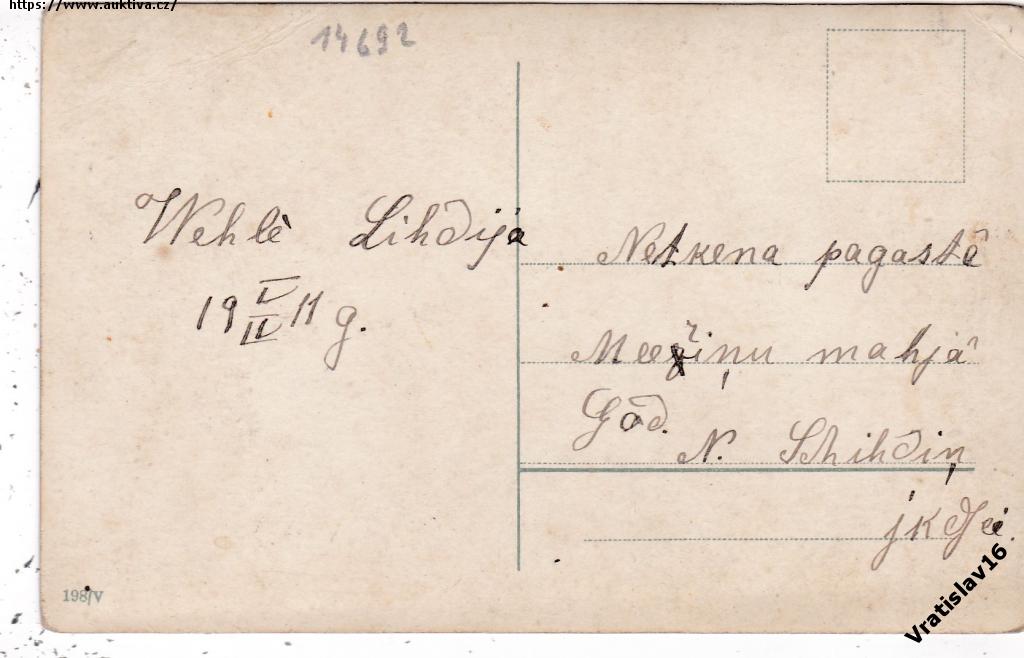 https://www.auktiva.cz/
14692
Wehlè Lihdija
19 V/II 11 g.
Netkena pagastâ
Meeziņu mahjâ
God.
N. Skihdiņ
jkdzei.
198/V
Vratislav16